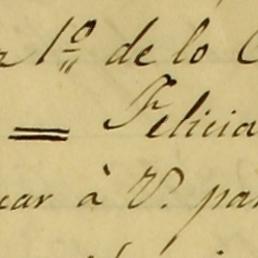 1º de lo
= Felicia
car à V. par